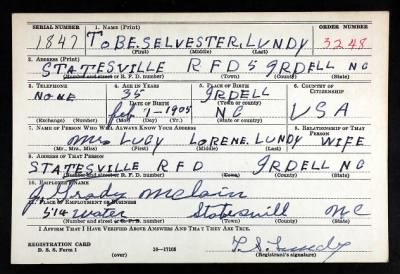 SERIAL NUMBER 1. NAME (Print) ORDER NUMBER
1847 TOBE. SELVESTER. LUNDY 3248
(First) (Middle) (Last)
2. ADDRESS (Print)
STATESVILLE RFD 5 IRDELL NC
(Number and street or R. F. D. number) (Town) (County) (State)
3. TELEPHONE 4. AGE IN YEARS 5. PLACE OF BIRTH 6. COUNTRY OF CITIZENSHIP
NONE 35 IRDELL
DATE OF BIRTH (Town or county)
Feb 1-1905 NC USA
(Exchange) (Number) (Mo.) (Day) (Yr.) (State or country)
7. NAME OF PERSON WHO WILL ALWAYS KNOW YOUR ADDRESS 8. RELATIONSHIP OF THAT PERSON
Mrs LUCY LORENE. LUNDY WIFE
(Mr., Mrs., Miss) (First) (Middle) (Last)
9. ADDRESS OF THAT PERSON
STATESVILLE RFD IRDELL NC
(Number and street or R. F. D. number) (Town) (County) (State)
10. EMPLOYER'S NAME
J Grady McClain
11. PLACE OF EMPLOYMENT OR BUSINESS
514 Water Statesvill NC
(Number and street or R. F. D. number) (Town) (County) (State)
I AFFIRM THAT I HAVE VERIFIED ABOVE ANSWERS AND THAT THEY ARE TRUE.
T. S. Lundy
REGISTRATION CARD
D. S. S. Form 1 16-17105
(over) (Registrant's signature)